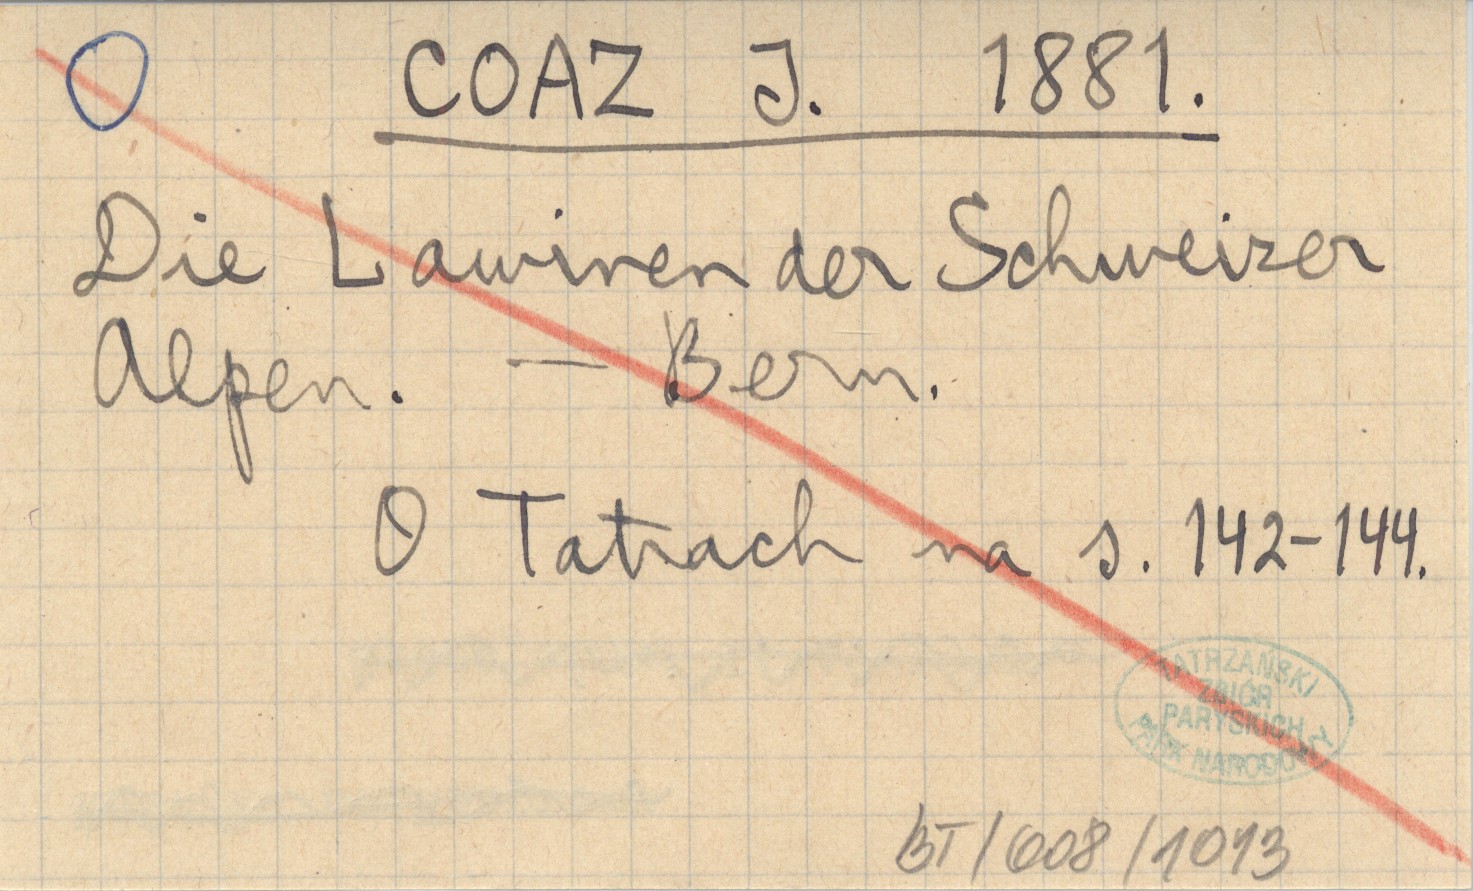 COAZ J. 1881.
Die Lawinen der Schweizer
Alpen. — Bern.
O Tatrach na s. 142-144.
TATRZAŃSKI
ZBIÓR
PARYSKICH
PARK NARODOWY
BT/008/1013